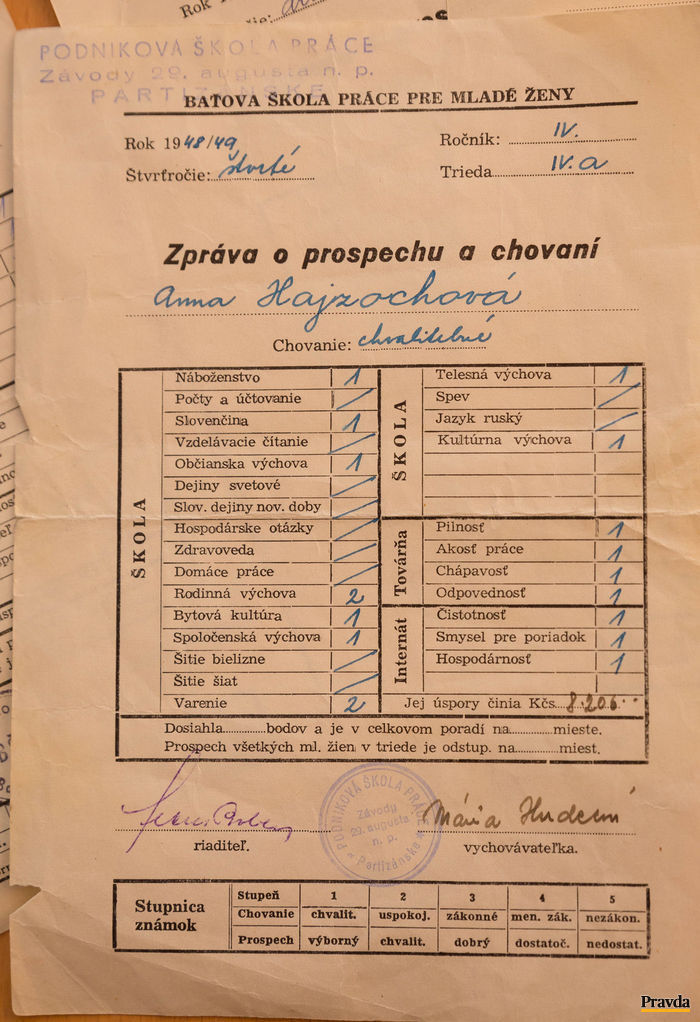 Rok
PODNIKOVÁ ŠKOLA PRÁCE
Závody 29. augusta n. p.
PARTIZÁNSKE
BAŤOVA ŠKOLA PRÁCE PRE MLADÉ ŽENY
Rok 1948/49 Ročník: IV.
Štvrťročie: štvrté Trieda IV.a
Zpráva o prospechu a chovaní
Anna Hajzochová
Chovanie: chvalitebné
ŠKOLA
Náboženstvo 1
Počty a účtovanie /
Slovenčina 1
Vzdelávacie čítanie /
Občianska výchova 1
Dejiny svetové /
Slov. dejiny nov. doby /
Hospodárske otázky /
Zdravoveda /
Domáce práce /
Rodinná výchova 2
Bytová kultúra 1
Spoločenská výchova 1
Šitie bielizne /
Šitie šiat /
Varenie 2
ŠKOLA
Telesná výchova 1
Spev /
Jazyk ruský /
Kultúrna výchova 1
Továrňa
Pilnosť 1
Akosť práce 1
Chápavosť 1
Odpovednosť 1
Internát
Čistotnosť 1
Smysel pre poriadok 1
Hospodárnosť 1
Jej úspory činia Kčs 8.206.--
Dosiahla............bodov a je v celkovom poradí na............mieste.
Prospech všetkých ml. žien v triede je odstup. na............miest.
PODNIKOVÁ ŠKOLA PRÁCE
Závody
29. augusta
n. p.
Partizánske
Mária
riaditeľ. vychovávateľka.
Stupnica známok
Stupeň 1 2 3 4 5
Chovanie chvalit. uspokoj. zákonné men. zák. nezákon.
Prospech výborný chvalit. dobrý dostatoč. nedostat.
Pravda